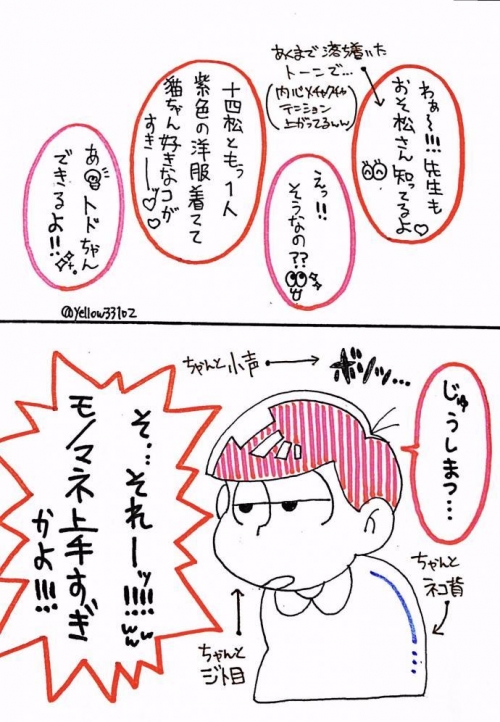 わぁ〜!!! 先生も
おそ松さん知ってるよ♡
あくまで落ち着いた
トーンで…
(内心メチャクチャ
テンション
上がってるww)
えっ!!
そうなの??
十四松ともう1人
紫色の洋服着てて
猫ちゃん好きなコが
すきーッ♡♡
あ トドちゃん
できるよ!!
@yellow33102
じゅうしまつ…
ちゃんと小声
ボソッ…
ちゃんと
ネコ背
ちゃんと
ジト目
そ… それーッ!!!!ww
モノマネ上手すぎ
かよ!!!